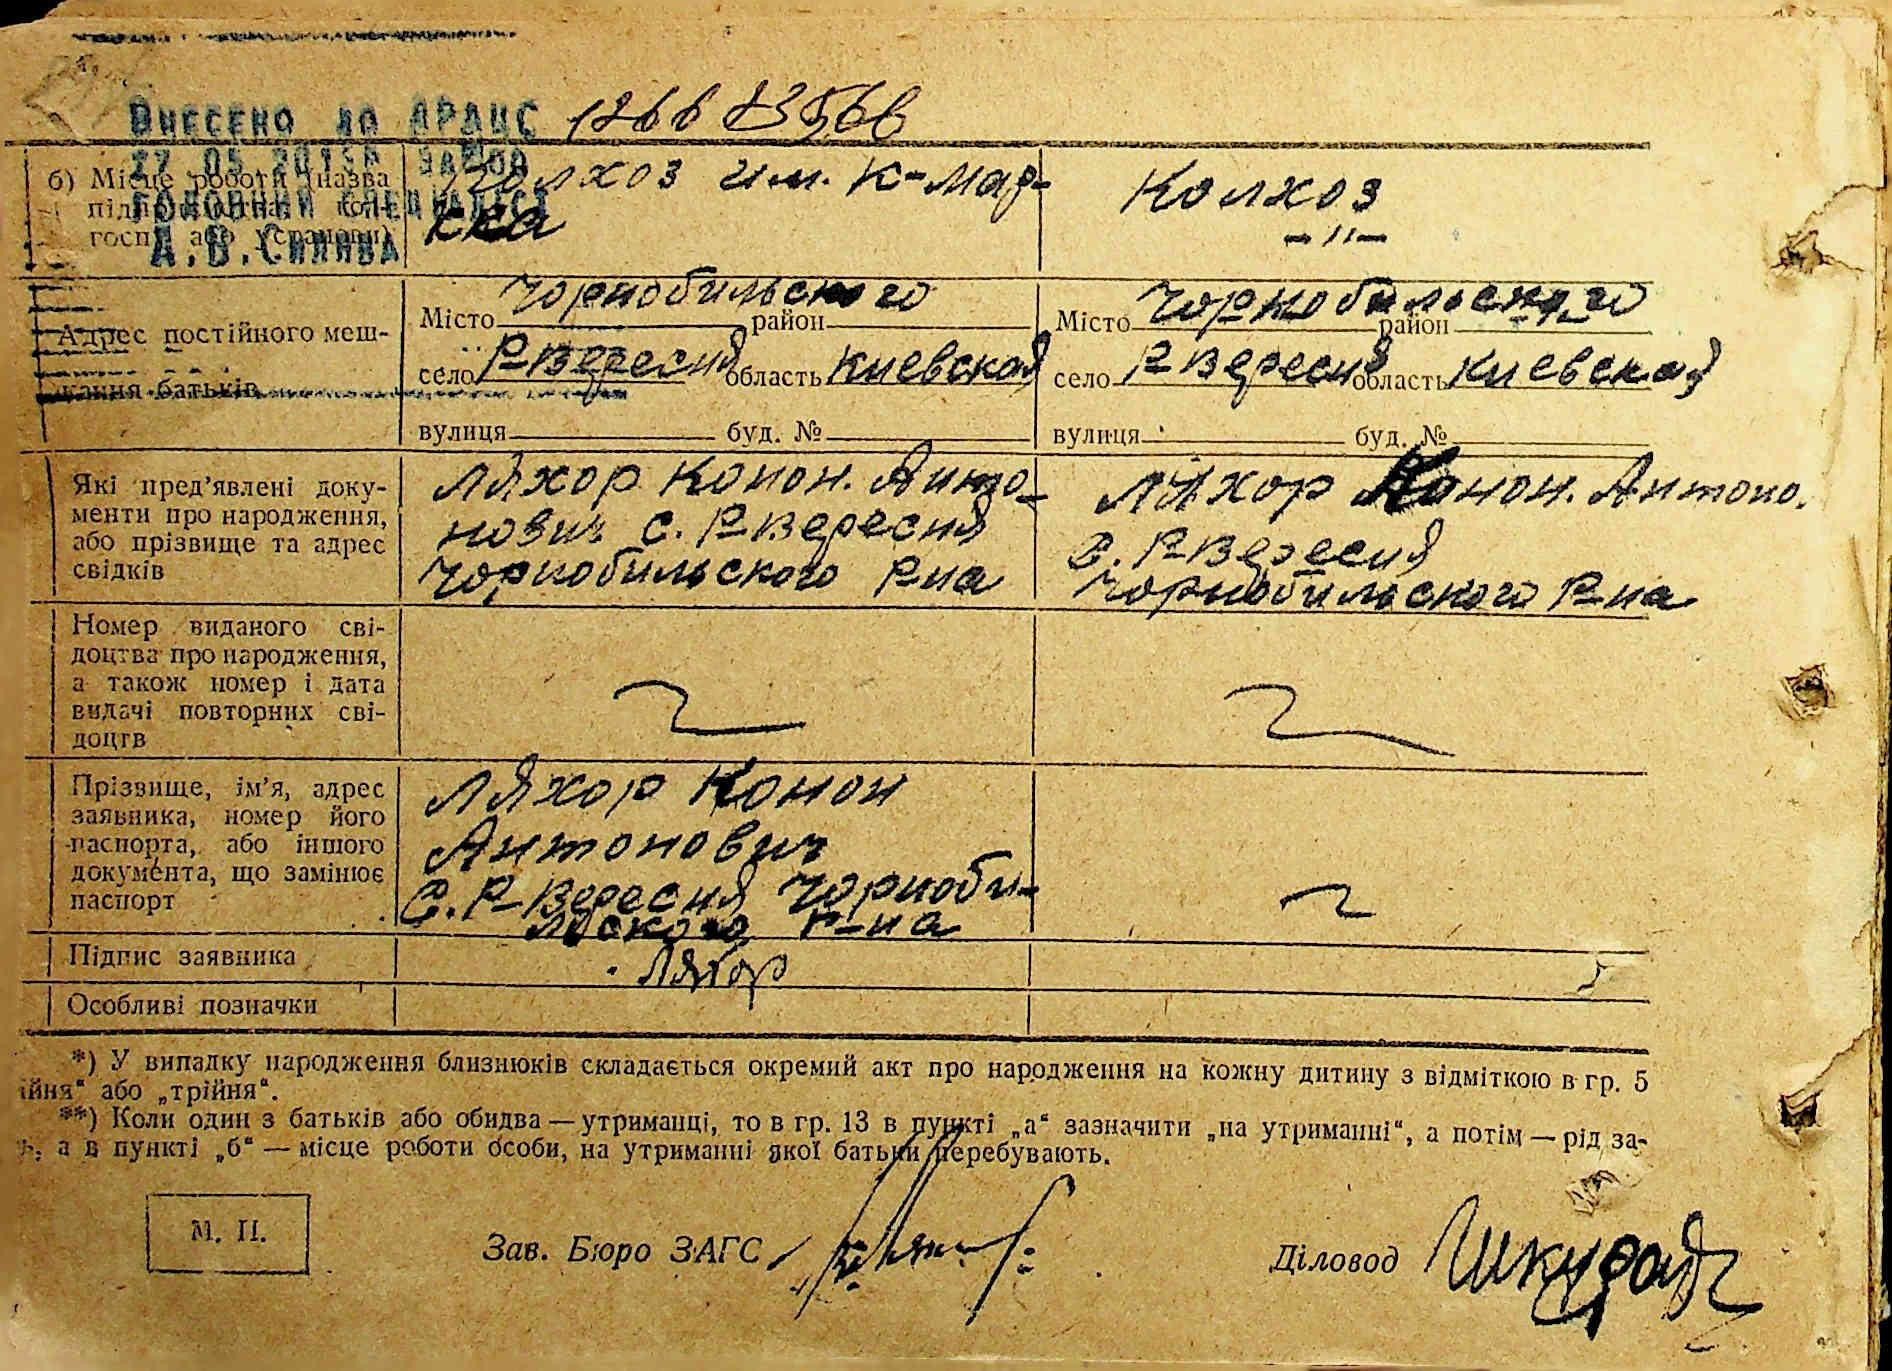 Внесено до ДРАЦС 126683566
27.05.2013р
головний спеціаліст
А.В.
б) Місце роботи (назва
госп. або установи)
Колхоз им. К-Мар-
кса
Колхоз
-"-
Адрес постійного меш-
кання батьків
Чорнобильского
Місто район
село Р-Вересня область Киевская
вулиця буд. №
Чорнобильского
Місто район
село Р-Вересня область Киевская
вулиця буд. №
Які пред'явлені доку-
менти про народження,
або прізвище та адрес
свідків
Ляхор Конон. Анто-
нович с. Р-Вересня
Чорнобильского Р-на
Ляхор Конон. Антоно.
с. Р-Вересня
Чорнобильского Р-на
Номер виданого сві-
доцтва про народження,
а також номер і дата
видачі повторних сві-
доцтв
Прізвище, ім'я, адрес
заявника, номер його
паспорта, або іншого
документа, що замінює
паспорт
Ляхор Конон
Антонович
с. Р-Вересня Чорноби-
льского Р-на
Підпис заявника
Ляхор
Особливі позначки
*) У випадку народження близнюків складається окремий акт про народження на кожну дитину з відміткою в гр. 5
ійня" або „трійня".
**) Коли один з батьків або обидва — утриманці, то в гр. 13 в пункті „а" зазначити „на утриманні", а потім — рід за-
а в пункті „б" — місце роботи особи, на утриманні якої батьки перебувають.
М. П.
Зав. Бюро ЗАГС
Діловод